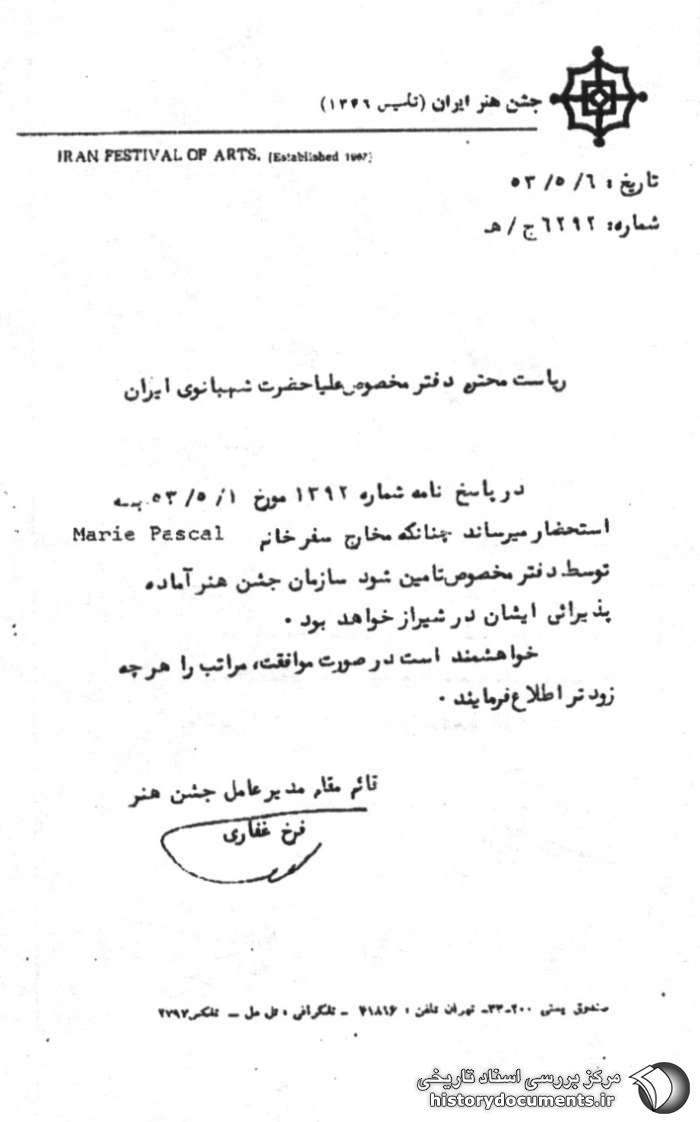 جشن هنر ایران (تأسیس ۱۳۴۶)
IRAN FESTIVAL OF ARTS. [Established 1967]
تاریخ : ۵۳/۵/۶
شماره: ۶۲۹۲ ج / هـ
ریاست محترم دفتر مخصوص علیاحضرت شهبانوی ایران
در پاسخ نامه شماره ۱۳۹۲ مورخ ۵۳/۵/۱ به
استحضار میرساند چنانکه مخارج سفر خانم Marie Pascal
توسط دفتر مخصوص تامین شود سازمان جشن هنر آماده
پذیرائی ایشان در شیراز خواهد بود .
خواهشمند است در صورت موافقت، مراتب را هرچه
زودتر اطلاع فرمایند .
قائم مقام مدیر عامل جشن هنر
فرخ غفاری
صندوق پستی ۲۰۰-۳۳- تهران تلفن : ۴۱۸۱۶ - تلگرافی : تل مل - تلکس ۲۷۹۲
مرکز بررسی اسناد تاریخی
historydocuments.ir